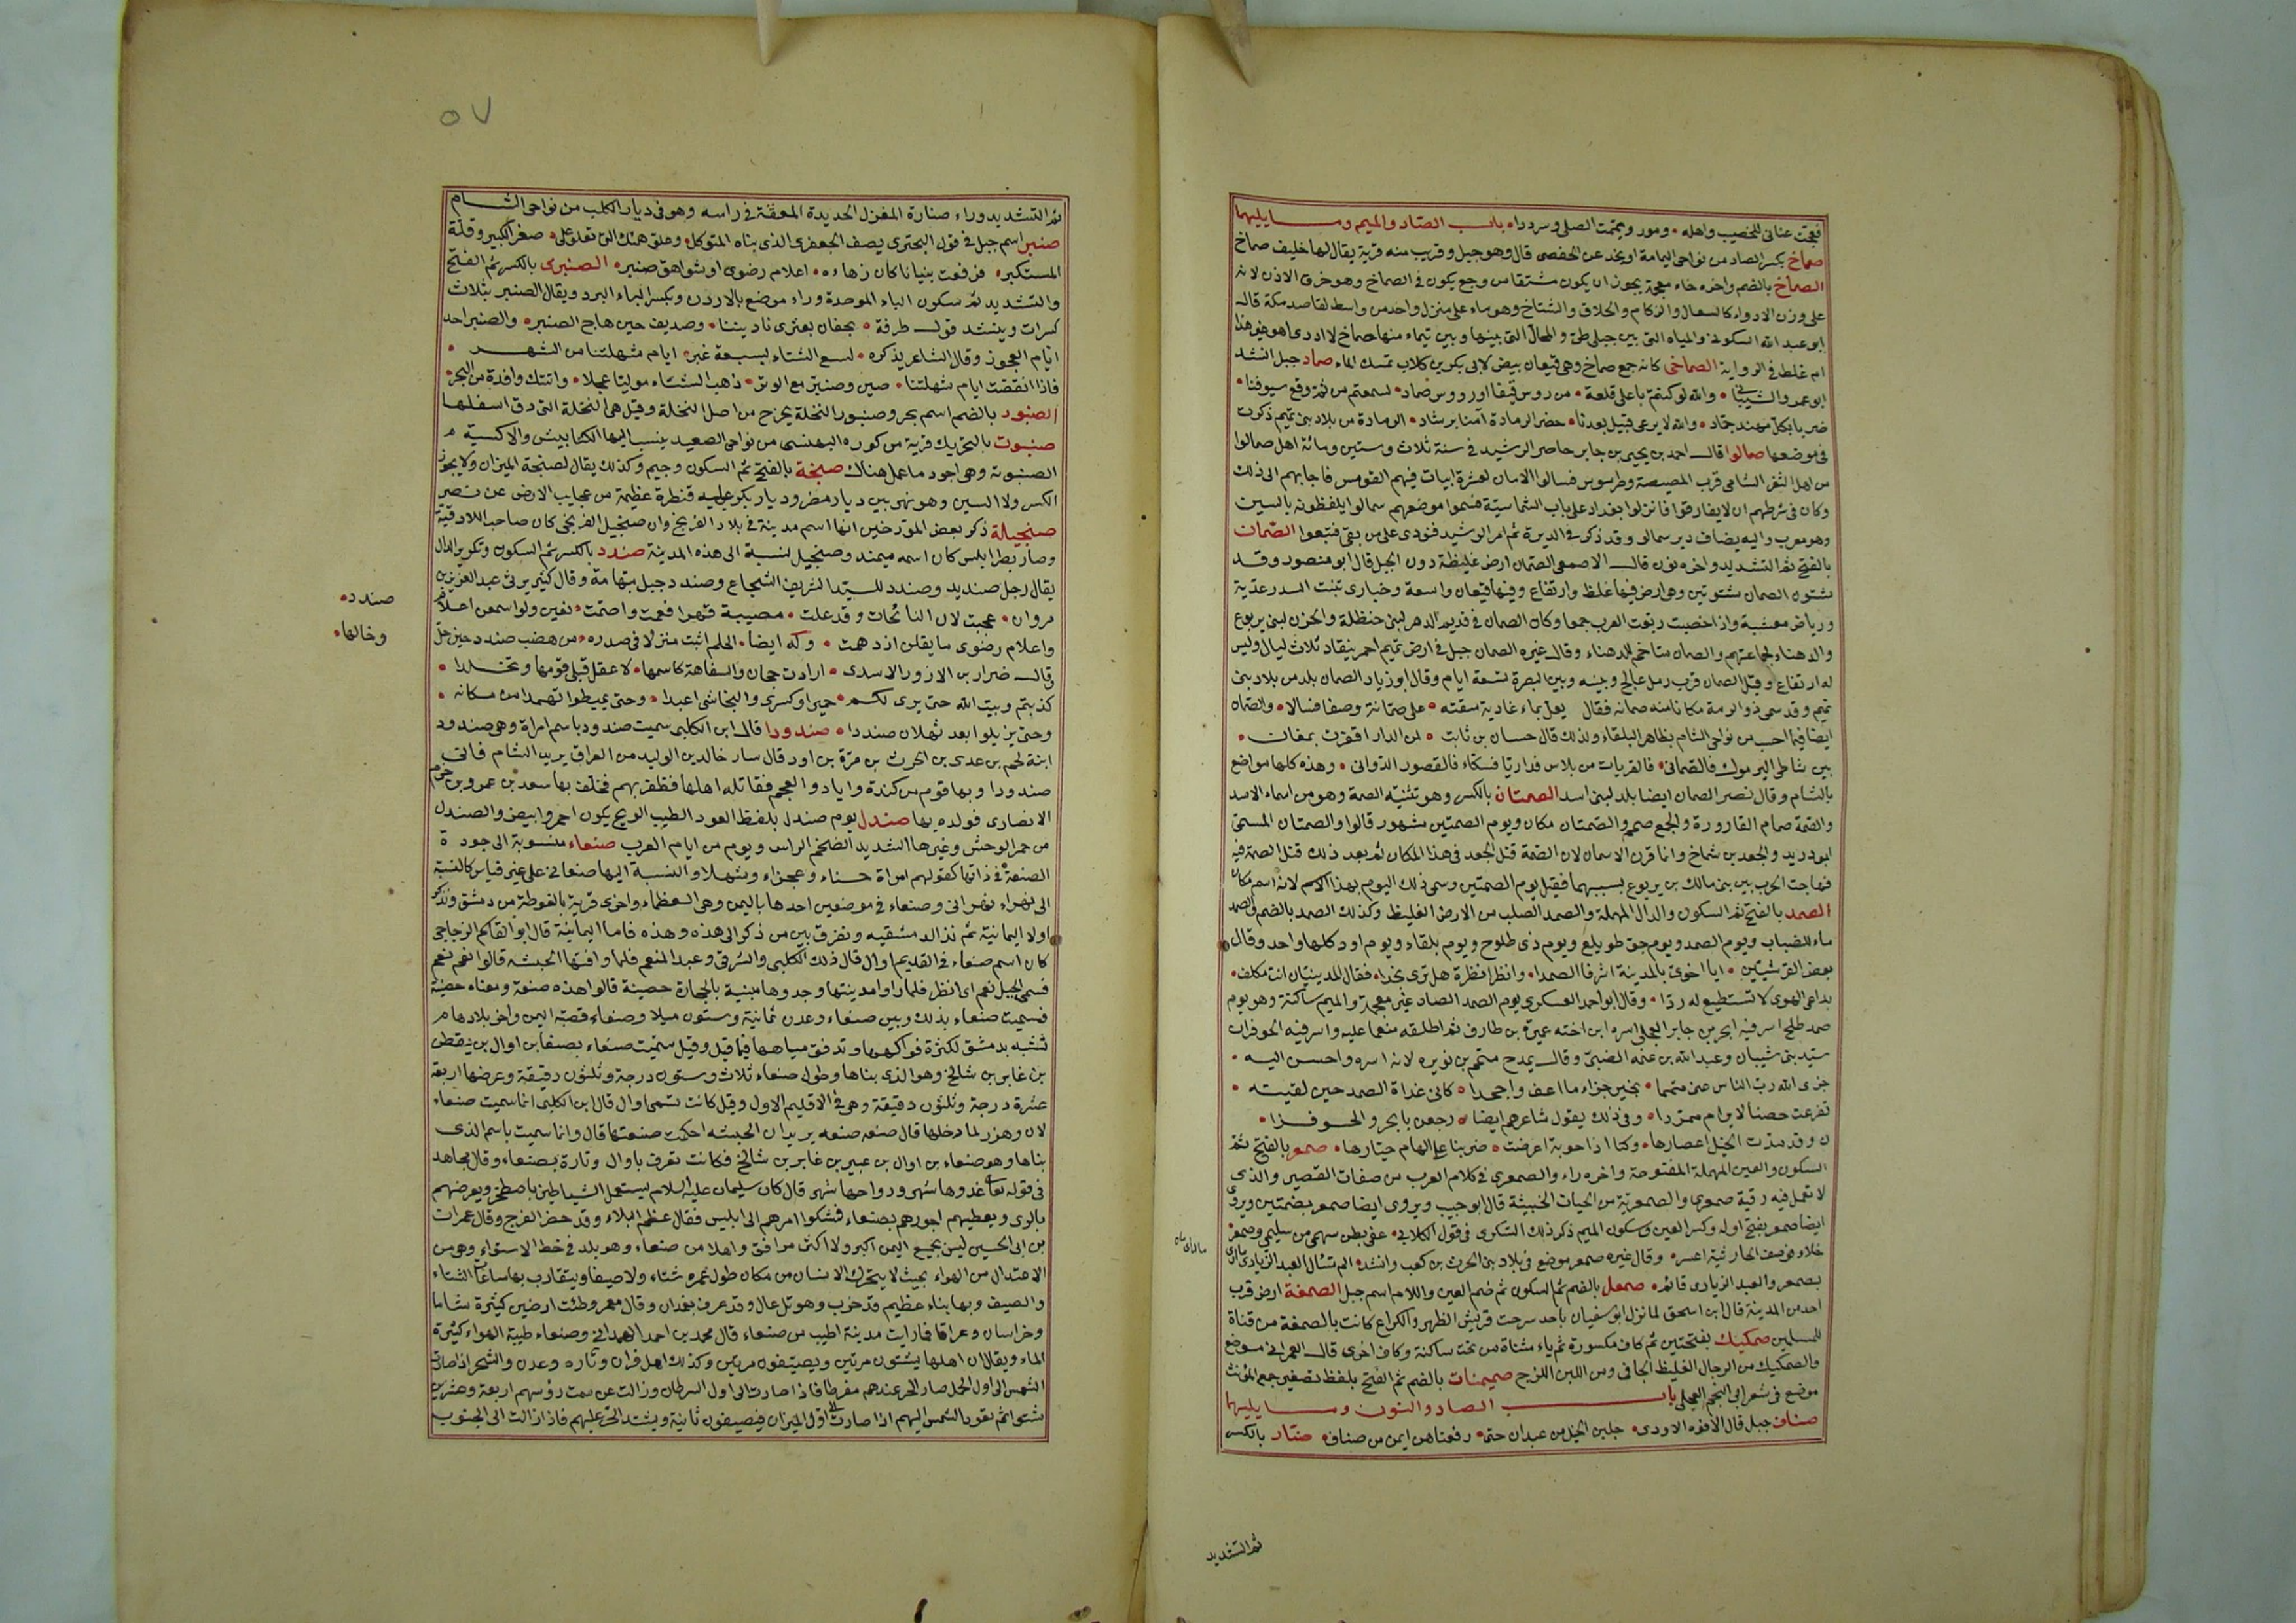 فعجت عنانى للخصيب واهله ومور ويممت المصلى وسرددا باب الصاد والميم وما يليهما
صماخ بكسر الصاد من نواحى اليمامة او نجد عن الحفصى قال وهو جبل وقرب منه قرية يقال لها خليف صماخ
الصماخ بالضم واخره خاء معجمة يجوز ان يكون مشتقا من وجع يكون فى الصماخ وهو خرق الاذن لانه
على وزن الادواء كالسعال والزكام والحلاق والشتاخ وهو ماء على منزل واحد من واسط لقاصد مكة قاله
ابو عبد الله السكونى والمياه التى بين جبلى طى والجبال التى بينها وبين تيماء منها صماخ لا ادرى اهو هو هذا
ام غلط فى الرواية الصماخى كانه جمع صماخ وهى قيعان بيض لابى بكر بن كلاب تمسك الماء صماد جبل انشد
ابو عمرو الشيبانى والله لو كنتم باعلى قلعة من روس فيفا او رووس صماد لسمعتم من ثم وقع سيوفنا
ضربا بكل مهند جماد والله لا يرعى قبيل بعدنا خضر الرمادة آمنا برشاد الرمادة من بلاد بنى تميم ذكرت
فى موضعها صمالوا قال احمد بن يحيى بن جابر حاصر الرشيد فى سنة ثلاث وستين ومائة اهل صمالوا
من اهل الثغر الشامى قرب المصيصة وطرسوس فسالوا الامان لعشرة ابيات فيهم القومس فاجابهم الى ذلك
وكان فى شرطهم ان لا يفارقوا فانزلوا بغداد على باب الشماسية فسموا موضعهم سمالوا يلفظونه بالسين
وهو معرب واليه يضاف دير سمالو وقد ذكر فى الديرة ثم امر الرشيد فنودى على من بقى فتبعوا الصمان
بالفتح ثم التشديد واخره نون قال الاصمعى الصمان ارض غليظة دون الجبل قال ابو منصور وقد
شتوت الصمان شتوتين وهى ارض فيها غلظ وارتفاع وفيها قيعان واسعة وخبارى تنبت السدر عذبة
ورياض معشبة واذا اخصبت ربعت العرب جمعا وكان الصمان فى قديم الدهر لبنى حنظلة والحزن لبنى يربوع
والدهناء لجماعتهم والصمان متاخم للدهناء وقال غيره الصمان جبل فى ارض تميم احمر ينقاد ثلاث ليال وليس
له ارتفاع وقيل الصمان قرب رمل عالج وبينه وبين البصرة تسعة ايام وقال ابو زياد الصمان بلد من بلاد بنى
تميم وقد سمى ذو الرمة مكانا منه صمانه فقال يعل بماء غادية سقته على صمانة وصفا فسالا والصمان
ايضا فيما احسب من نواحى الشام بظاهر البلقاء ولذلك قال حسان بن ثابت لمن الدار اقفرت بمغان
بين شاطى اليرموك فالصمانى فالقريات من بلاس فداريا فسكاء فالقصور الدوانى وهذه كلها مواضع
بالشام وقال نصر الصمان ايضا بلد لبنى اسد الصمتان بالكسر وهو تثنية الصمة وهو من اسماء الاسد
والصمة صمام القارورة والجمع صمم والصمتان مكان ويوم الصمتين مشهور قالوا والصمتان المسمى
ابو دريد والجعد بن شماخ وانما قرن الاسمان لان الصمة قتل الجعد فى هذا المكان ثم بعد ذلك قتل الصمة فيه
فهاجت الحرب بين بنى مالك بن يربوع بسببهما فقيل يوم الصمتين وسمى ذلك اليوم بهذا الاسم لانه اسم مكان
الصمد بالفتح ثم السكون والدال المهملة والصمد الصلب من الارض الغليظ وكذلك الصمد بالضم والصمد
ماء للضباب ويوم الصمد ويوم جوف طويلع ويوم ذى طلوح ويوم بلقاء ويوم اود كلها واحد وقال
بعض القرشيين ايا اخوى بالمدينة اشرفا الصمدا وانظرا نظرة هل ترى نجدا فقال المدينيان انت مكلف
بداعى الهوى لا تستطيع له ردا وقال ابو احمد العسكرى يوم الصمد الصاد غير معجمة والميم ساكنة وهو يوم
صمد طلح اسر فيه ابجر بن جابر العجلى اسره ابن اخته عميرة بن طارق ثم اطلقه منعما عليه واسر فيه الحوفزان
سيد بنى شيبان وعبد الله بن عنمه الضبى وقال يمدح متمم بن نويره لانه اسره واحسن اليه
جزى الله رب الناس عنى متمما بخير جزاء ما اعف وامجدا كانى غداة الصمد حين لقيته
تفرعت حصنا لا يرام ممردا وفى ذلك يقول شاعرهم ايضا رجعن بابحر والحوفزا
ن وقد مدت الخيل اعصارها وكنا اذا حوبة اعرضت ضربنا على الهام جبارها صمعر بالفتح ثم
السكون والعين المهملة المفتوحة واخره راء والصمعرى فى كلام العرب من صفات القصير والذى
لا تعمل فيه رقية صمعرى والصمعرية من الحيات الخبيثة قال ابو حبيب ويروى ايضا صمعر بضمتين ويروى
ايضا صمعر بفتح اوله وكسر العين وسكون الميم ذكر ذلك السكرى فى قول الكلابى عفى بطن سهى من سليمى وصمعر
خلاء فوصف الحارثية اعسر وقال غيره صمعر موضع فى بلاد بنى الحرث بن كعب وانشد الم تسئال العبد الزيادى ما راى
بصمعر والعبد الزيادى قائم صمعل بالضم ثم السكون ثم ضم العين واللام اسم جبل الصمغة ارض قرب
احد من المدينة قال ابن اسحق لما نزل ابو سفيان باحد سرحت قريش الظهر والكراع كانت بالصمغة من قناة
للمسلمين صمكيك بفتحتين ثم كاف مكسورة ثم ياء مثناة من تحت ساكنة وكاف اخرى قال العمرانى موضع
والصمكيك من الرجال الغليظ الجافى ومن اللبن اللزج صميمنات بالضم ثم الفتح بلفظ تصغير جمع المؤنث
موضع فى شعر ابى النجم العجلى باب الصاد والنون وما يليهما
صناف جبل قال الافوه الاودى جلبن الخيل من عبدان حتى رفعناهن ايمن من صناف صنار بالكسر
ماراى
ثم التشديد
٥٧
ثم التشديد وراء صنارة المغزل الحديدة المعقفة فى راسه وهو فى ديار الكلب من نواحى الشام
صنبر اسم جبل فى قول البحترى يصف الجعفرى الذى بناه المتوكل وعلو همتك التى تعلو على صغر الكبير وقلة
المستكبر فرفعت بنيانا كان زهاءه اعلام رضوى او شواهق صنبر الصنبرى بالكسر ثم الفتح
والتشديد ثم سكون الباء الموحدة وراء موضع بالاردن وبكسر الباء البرد ويقال الصنبر بثلاث
كسرات وينشد قول طرفة بجفان يعترى نادينا وصديف حين هاج الصنبر والصنبر احد
ايام العجوز وقال الشاعر يذكره كسع الشتاء لسبعة غبر ايام شهلتنا من الشهر
فاذا انقضت ايام شهلتنا صن وصنبر مع الوبر ذهب الشتاء موليا عجلا واتتك وافدة من البحر
الصنبور بالضم اسم بحر وصنبور النخلة يخرج من اصل النخلة وقيل هى النخلة التى دق اسفلها
صنبوت بالتحريك قرية من كوره البهنسى من نواحى الصعيد ينسب اليها الكنابيش والاكسية
الصنبوته وهى اجود ما عمل هناك صنجة بالفتح ثم السكون وجيم وكذلك يقال لصنجة الميزان ولا يجوز
الكسر ولا السين وهو نهر بين ديار مضر وديار بكر عليه قنطرة عظيمة من عجايب الارض عن نصر
صنجيلة ذكر بعض المؤرخين انها اسم مدينة فى بلاد الفرنج وان صنجيل الفرنجى كان صاحب اللاذقية
وصار بطرابلس كان اسمه ميمند وصنجيل نسبة الى هذه المدينة صندد بالكسر ثم السكون وتكرير الدال
يقال رجل صنديد وصندد للسيد الشريف الشجاع وصندد جبل بتهامة وقال كثير يرثى عبد العزيز بن
مروان عجبت لان النائحات وقد علت مصيبة قهرا فعمت واصمت نعين ولو اسمعن اعلام
صندد
واعلام رضوى ما يقلن ازدهمت وله ايضا الحلم اثبت منزلا فى صدره من هضب صندد حين حل
وخالها
قال ضرار بن الازور الاسدى ارادت حجان والسفاهة كاسمها لاعقل قبلى قومها وتخلدا
كذبتم وبيت الله حتى يرى لكم حميرا وكسرى والنجاشى اعبدا وحتى يميطوا ثهمدا من مكانه
وحتى يزيلوا بعد ثهلان صنددا صندودا قال ابن الكلبى سميت صندود باسم امراة وهى صندود
ابنة لخم بن عدى بن الحرث بن مرة بن ادد قال سار خالد بن الوليد من العراق يريد الشام فاتى
صندودا وبها قوم من كندة واياد والعجم فقاتله اهلها فظفر بهم فخلف بها سعد بن عمرو بن حرام
الانصارى فولده بها صندل يوم صندل بلفظ العود الطيب الريح يكون احمر وابيض والصندل
من حمر الوحش وغيرها الشديد الضخم الراس ويوم من ايام العرب صنعاء منسوبة الى جودة
الصنعة فى ذاتها كقولهم امراة حسناء وعجزاء وشهلاء والنسبة اليها صنعانى على غير قياس كالنسبة
الى بهراء بهرانى وصنعاء فى موضعين احدها باليمن وهى العظماء واخرى قرية بالغوطة من دمشق ونذكر
اولا اليمانية ثم نذكر الدمشقيه ونفرق بين من ذكر الى هذه وهذه فاما اليمانية قال ابو القاسم الزجاجى
كان اسم صنعاء فى القديم اوال قال ذلك الكلبى والشرقى وعبد المنعم فلما وافتها الحبشه قالوا نعم نعم
فسمى الجبل نعم اى انظر فلما راوا مدينتها وجدوها مبنية بالحجارة حصينة قالوا هذه صنعة ومعناه حصينة
فسميت صنعاء بذلك وبين صنعاء وعدن ثمانية وستون ميلا وصنعاء قصبة اليمن واخر بلادها
تشبه بدمشق لكثرة فواكهها وتدفق مياهها فيما قيل وقيل سميت صنعاء بصنعا بن اوال بن يقطن
بن غابر بن شالخ وهو الذى بناها وطول صنعاء ثلاث وستون درجة وثلثون دقيقة وعرضها اربعة
عشرة درجة وثلثون دقيقة وهى فى الاقليم الاول وقيل كانت تسمى اوال قال ابن الكلبى انما سميت صنعاء
لان وهزر لما دخلها قال صنعه صنعه يريد ان الحبشه احكمت صنعتها قال وانما سميت باسم الذى
بناها وهو صنعاء بن اوال بن عبير بن غابر بن شالخ فكانت تعرف باوال وتارة بصنعاء وقال مجاهد
فى قوله تعا غدوها شهر ورواحها شهر قال كان سليمان عليه السلام يستعمل الشياطين باصطخر ويعرضهم
بالرى ويعطيهم اجورهم بصنعاء فشكوا امرهم الى ابليس فقال عظم البلاء وقد حضر الفرج وقال عمران
بن ابى الحسين ليس بجميع اليمن اكبر ولا اكثر مرافق واهلا من صنعاء وهو بلد فى خط الاستواء وهو من
الاعتدال من الهواء بحيث لا يتحرك الانسان من مكان طول عمره شتاء ولا صيفا ويتقارب بها ساعات الشتاء
والصيف وبها بناء عظيم قد خرب وهو تل عال وقد عرف بغمدان وقال معمر وطئت ارضين كثيرة شاما
وخراسان وعراقا فما رايت مدينة اطيب من صنعاء قال محمد بن احمد الهمدانى وصنعاء طيبة الهواء كثيرة
الماء ويقال ان اهلها يشتون مرتين ويصيفون مرتين وكذلك اهل فران وتاره وعدن والشحر اذا صارت
الشمس الى اول الحمل صار الحر عندهم مفرطا فاذا صارت الى اول السرطان وزالت عن سمت رؤسهم اربعة وعشرين
شتوا ثم تعود الشمس اليهم اذا صارت الى اول الميزان فيصيفون ثانية ويشتد الحر عليهم فاذا زالت الى الجنوب